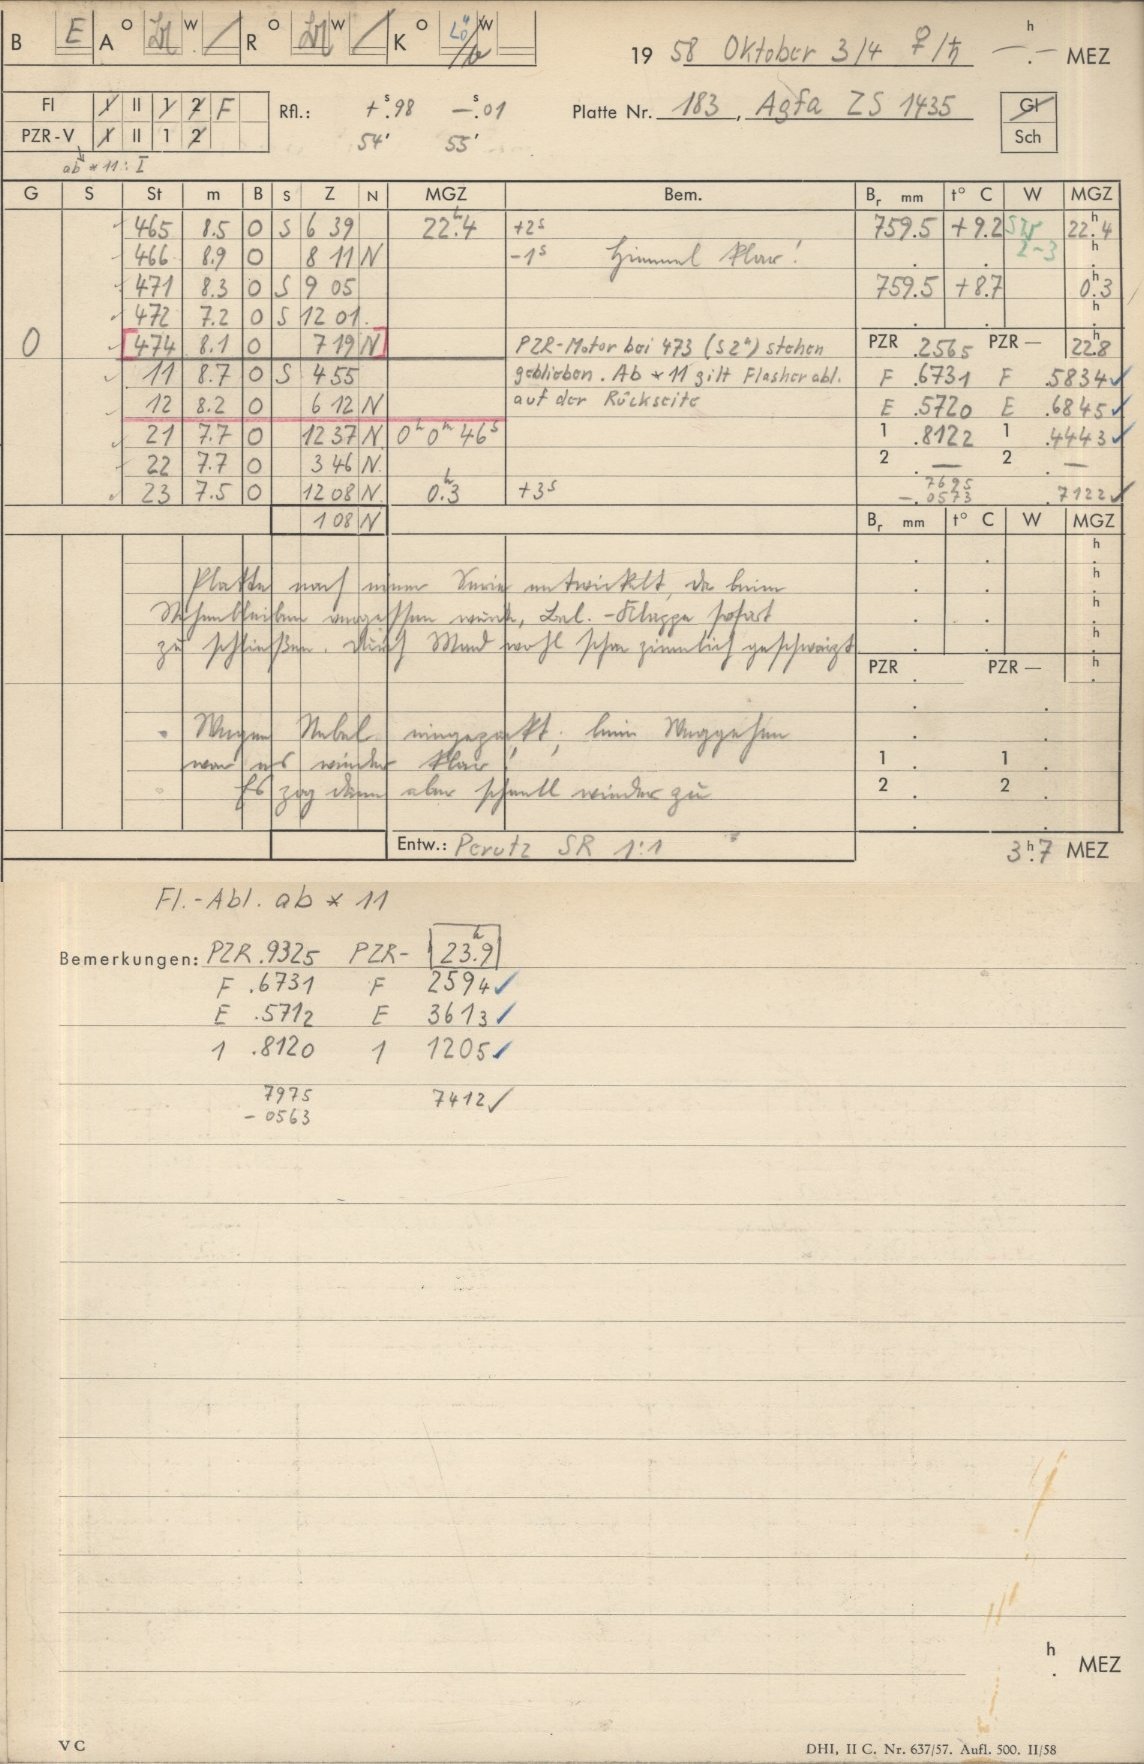 B E A O W R O W K O W
19 58 Oktober 3/4 ♀/♄ h MEZ
Fl I II 1 2 F
PZR-V I II 1 2
ab * 11: I
Rfl.: +.ˢ98 −.ˢ01
54' 55'
Platte Nr. 183, Agfa ZS 1435
Gl
Sch
G S St m B S Z N MGZ Bem. Bᵣ mm t° C W MGZ
465 8.5 O S 6 39 22ʰ.4 +2ˢ 759.5 +9.2 2-3 22ʰ.4
466 8.9 O 8 11 N -1ˢ Himmel klar!
471 8.3 O S 9 05 759.5 +8.7 0ʰ.3
472 7.2 O S 12 01.
O 474 8.1 O 7 19 N PZR-Motor bei 473 (S 2ⁿ) stehen PZR .2565 PZR — 22ʰ8
11 8.7 O S 4 55 geblieben. Ab * 11 gilt Flasherabl. F .6731 F .5834 ✓
12 8.2 O 6 12 N auf der Rückseite E .5720 E .6845 ✓
21 7.7 O 12 37 N 0ʰ 0ᵐ 46ˢ 1 .8122 1 .4443 ✓
22 7.7 O 3 46 N. 2 . — 2 . —
23 7.5 O 12 08 N 0ʰ.3 +3ˢ 7695
−.0573 .7122 ✓
1 08 N Bᵣ mm t° C W MGZ
Platte nach einer Serie entwickelt, da beim
Stehenbleiben vergessen wurde, Bel.-Klappe sofort
zu schließen. Durch Mond wohl schon ziemlich geschwärzt
PZR . PZR — h
Wegen Nebel eingepackt; beim Weggehen
war es wieder klar!
1 . 1 .
Es zog dann aber schnell wieder zu
2 . 2 .
Entw.: Perutz SR 1:1
3ʰ.7 MEZ
Fl.-Abl. ab * 11
Bemerkungen: PZR .9325 PZR- 23ʰ.9
F .6731 F 2594 ✓
E .5712 E 3613 ✓
1 .8120 1 1205 ✓
7975 7412 ✓
− 0563
h
. MEZ
V C
DHI, II C. Nr. 637/57. Aufl. 500. II/58